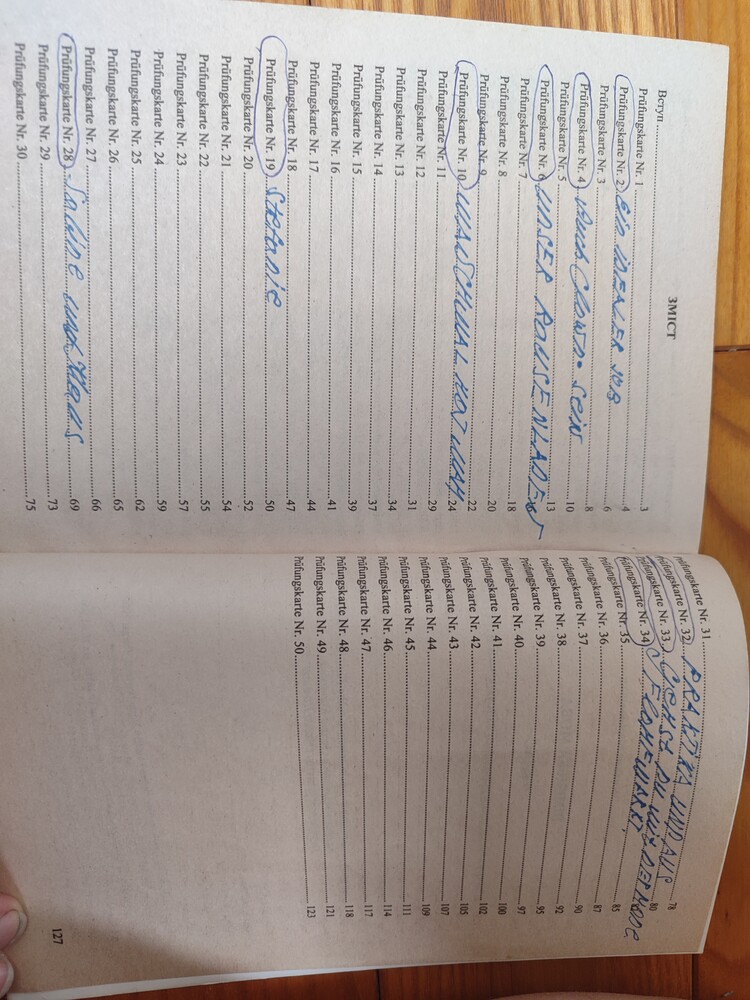 ЗМІСТ
Вступ ........ 3
Prüfungskarte Nr. 1 ........ 4
Prüfungskarte Nr. 2 EIN IDEALER JOB ........ 6
Prüfungskarte Nr. 3 ........ 8
Prüfungskarte Nr. 4 CLOWN SEIN ........ 10
Prüfungskarte Nr. 5
Prüfungskarte Nr. 6 UNSER PAUSENLADEN ........ 13
Prüfungskarte Nr. 7 ........ 18
Prüfungskarte Nr. 8 ........ 20
Prüfungskarte Nr. 9 ........ 22
Prüfungskarte Nr. 10 MANCHMAL HAT MAN ........ 24
Prüfungskarte Nr. 11 ........ 29
Prüfungskarte Nr. 12 ........ 31
Prüfungskarte Nr. 13 ........ 34
Prüfungskarte Nr. 14 ........ 37
Prüfungskarte Nr. 15 ........ 39
Prüfungskarte Nr. 16 ........ 41
Prüfungskarte Nr. 17 ........ 44
Prüfungskarte Nr. 18 ........ 47
Prüfungskarte Nr. 19 Stefanie ........ 50
Prüfungskarte Nr. 20 ........ 52
Prüfungskarte Nr. 21 ........ 54
Prüfungskarte Nr. 22 ........ 55
Prüfungskarte Nr. 23 ........ 57
Prüfungskarte Nr. 24 ........ 59
Prüfungskarte Nr. 25 ........ 62
Prüfungskarte Nr. 26 ........ 65
Prüfungskarte Nr. 27 ........ 66
Prüfungskarte Nr. 28 Sabine und Klaus ........ 69
Prüfungskarte Nr. 29 ........ 73
Prüfungskarte Nr. 30 ........ 75
Prüfungskarte Nr. 31 ........ 78
Prüfungskarte Nr. 32 PRAKTIKA UND AUS ........ 80
Prüfungskarte Nr. 33 GEHST DU MIT DER MODE
Prüfungskarte Nr. 34 FLOHEMARKT ........ 85
Prüfungskarte Nr. 35 ........ 87
Prüfungskarte Nr. 36 ........ 90
Prüfungskarte Nr. 37 ........ 92
Prüfungskarte Nr. 38 ........ 95
Prüfungskarte Nr. 39 ........ 97
Prüfungskarte Nr. 40 ........ 100
Prüfungskarte Nr. 41 ........ 102
Prüfungskarte Nr. 42 ........ 105
Prüfungskarte Nr. 43 ........ 107
Prüfungskarte Nr. 44 ........ 109
Prüfungskarte Nr. 45 ........ 111
Prüfungskarte Nr. 46 ........ 114
Prüfungskarte Nr. 47 ........ 117
Prüfungskarte Nr. 48 ........ 118
Prüfungskarte Nr. 49 ........ 121
Prüfungskarte Nr. 50 ........ 123
127